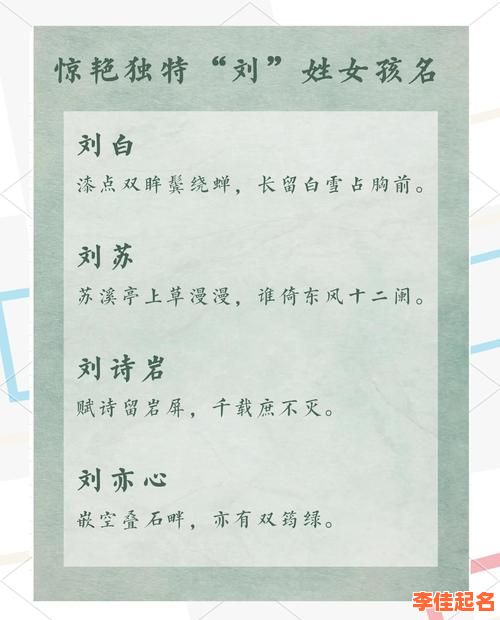 惊艳独特“刘”姓女孩名
刘白
漆点双眸鬓绕蝉，长留白雪占胸前。
刘苏
苏溪亭上草漫漫，谁倚东风十二阑。
刘诗岩
赋诗留岩屏，千载庶不灭。
刘亦心
嵌空叠石畔，亦有双筠绿。
李佳起名